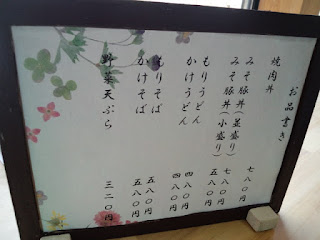 お品書き
焼肉丼 七八〇円
みそ豚丼(並盛り) 七八〇円
みそ豚丼(小盛り) 五八〇円
もりうどん 四八〇円
かけうどん 四八〇円
もりそば 五八〇円
かけそば 五八〇円
野菜天ぷら 三二〇円